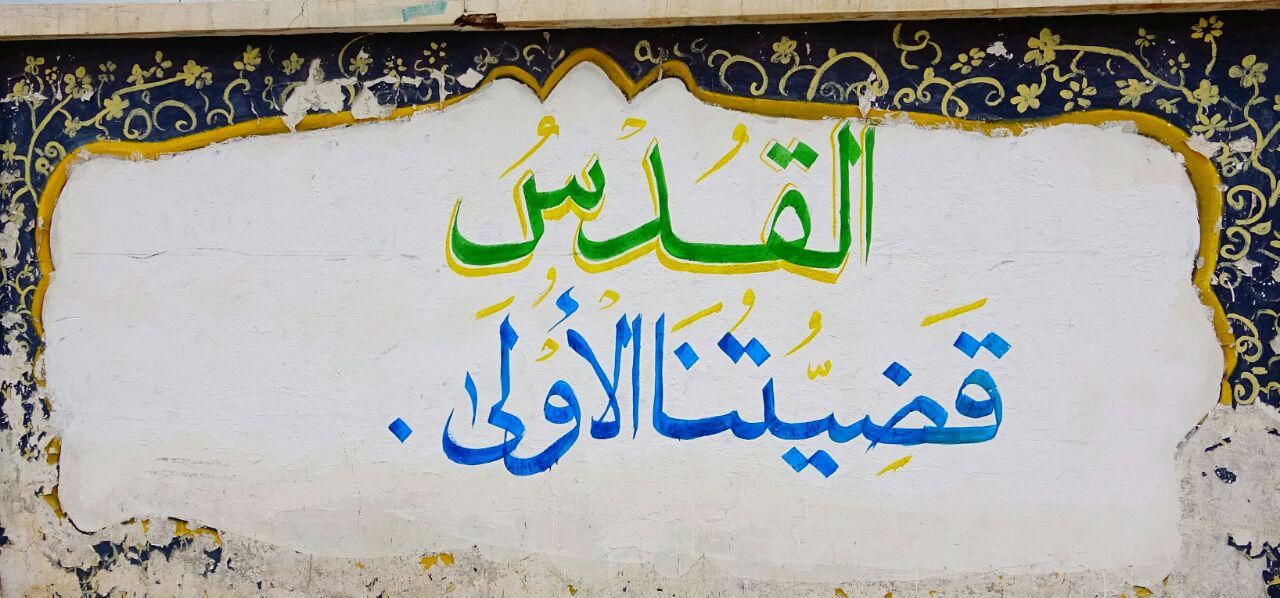 القُدْسُ
قَضِيَّتُنَا الْأُولَى .